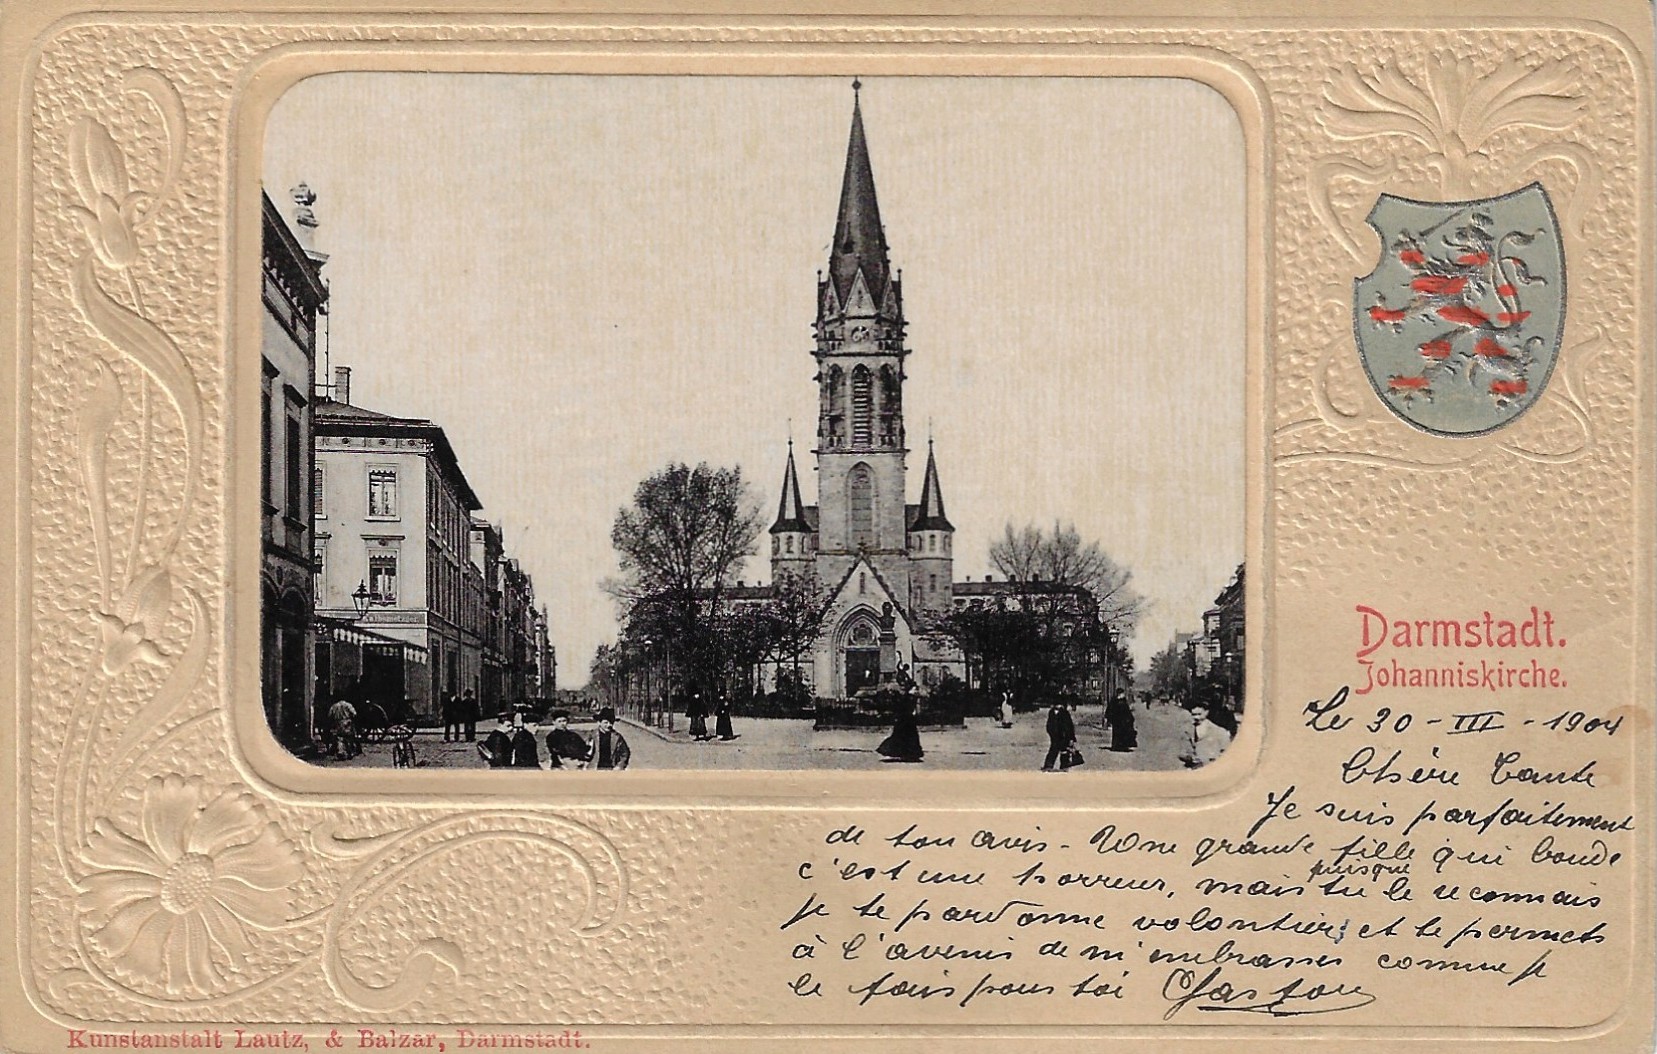 Darmstadt.
Johanniskirche.
Le 30 - III - 1904
Chère Tante
Je suis parfaitement
de ton avis - Une grande fille qui boude
c'est une horreur, mais puisque tu le reconnais
je te pardonne volontiers et te permets
à l'avenir de m'embrasser comme je
le fais pour toi Gaston
Kunstanstalt Lautz, & Balzar, Darmstadt.